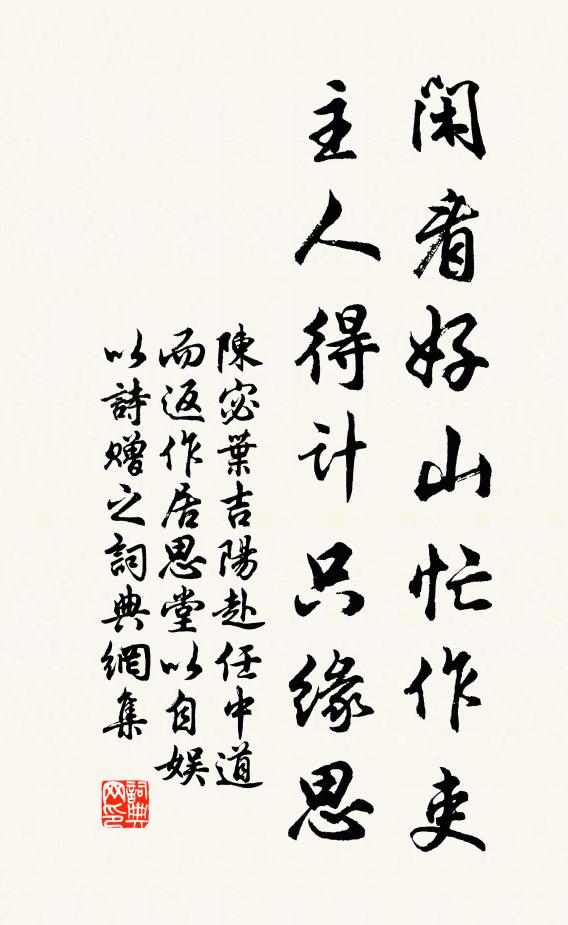 閑看好山忙作吏
主人得計只緣思
陳宓葉吉陽赴任中道
而返作居思堂以自娛
以詩贈之詞典網集
詞典网印